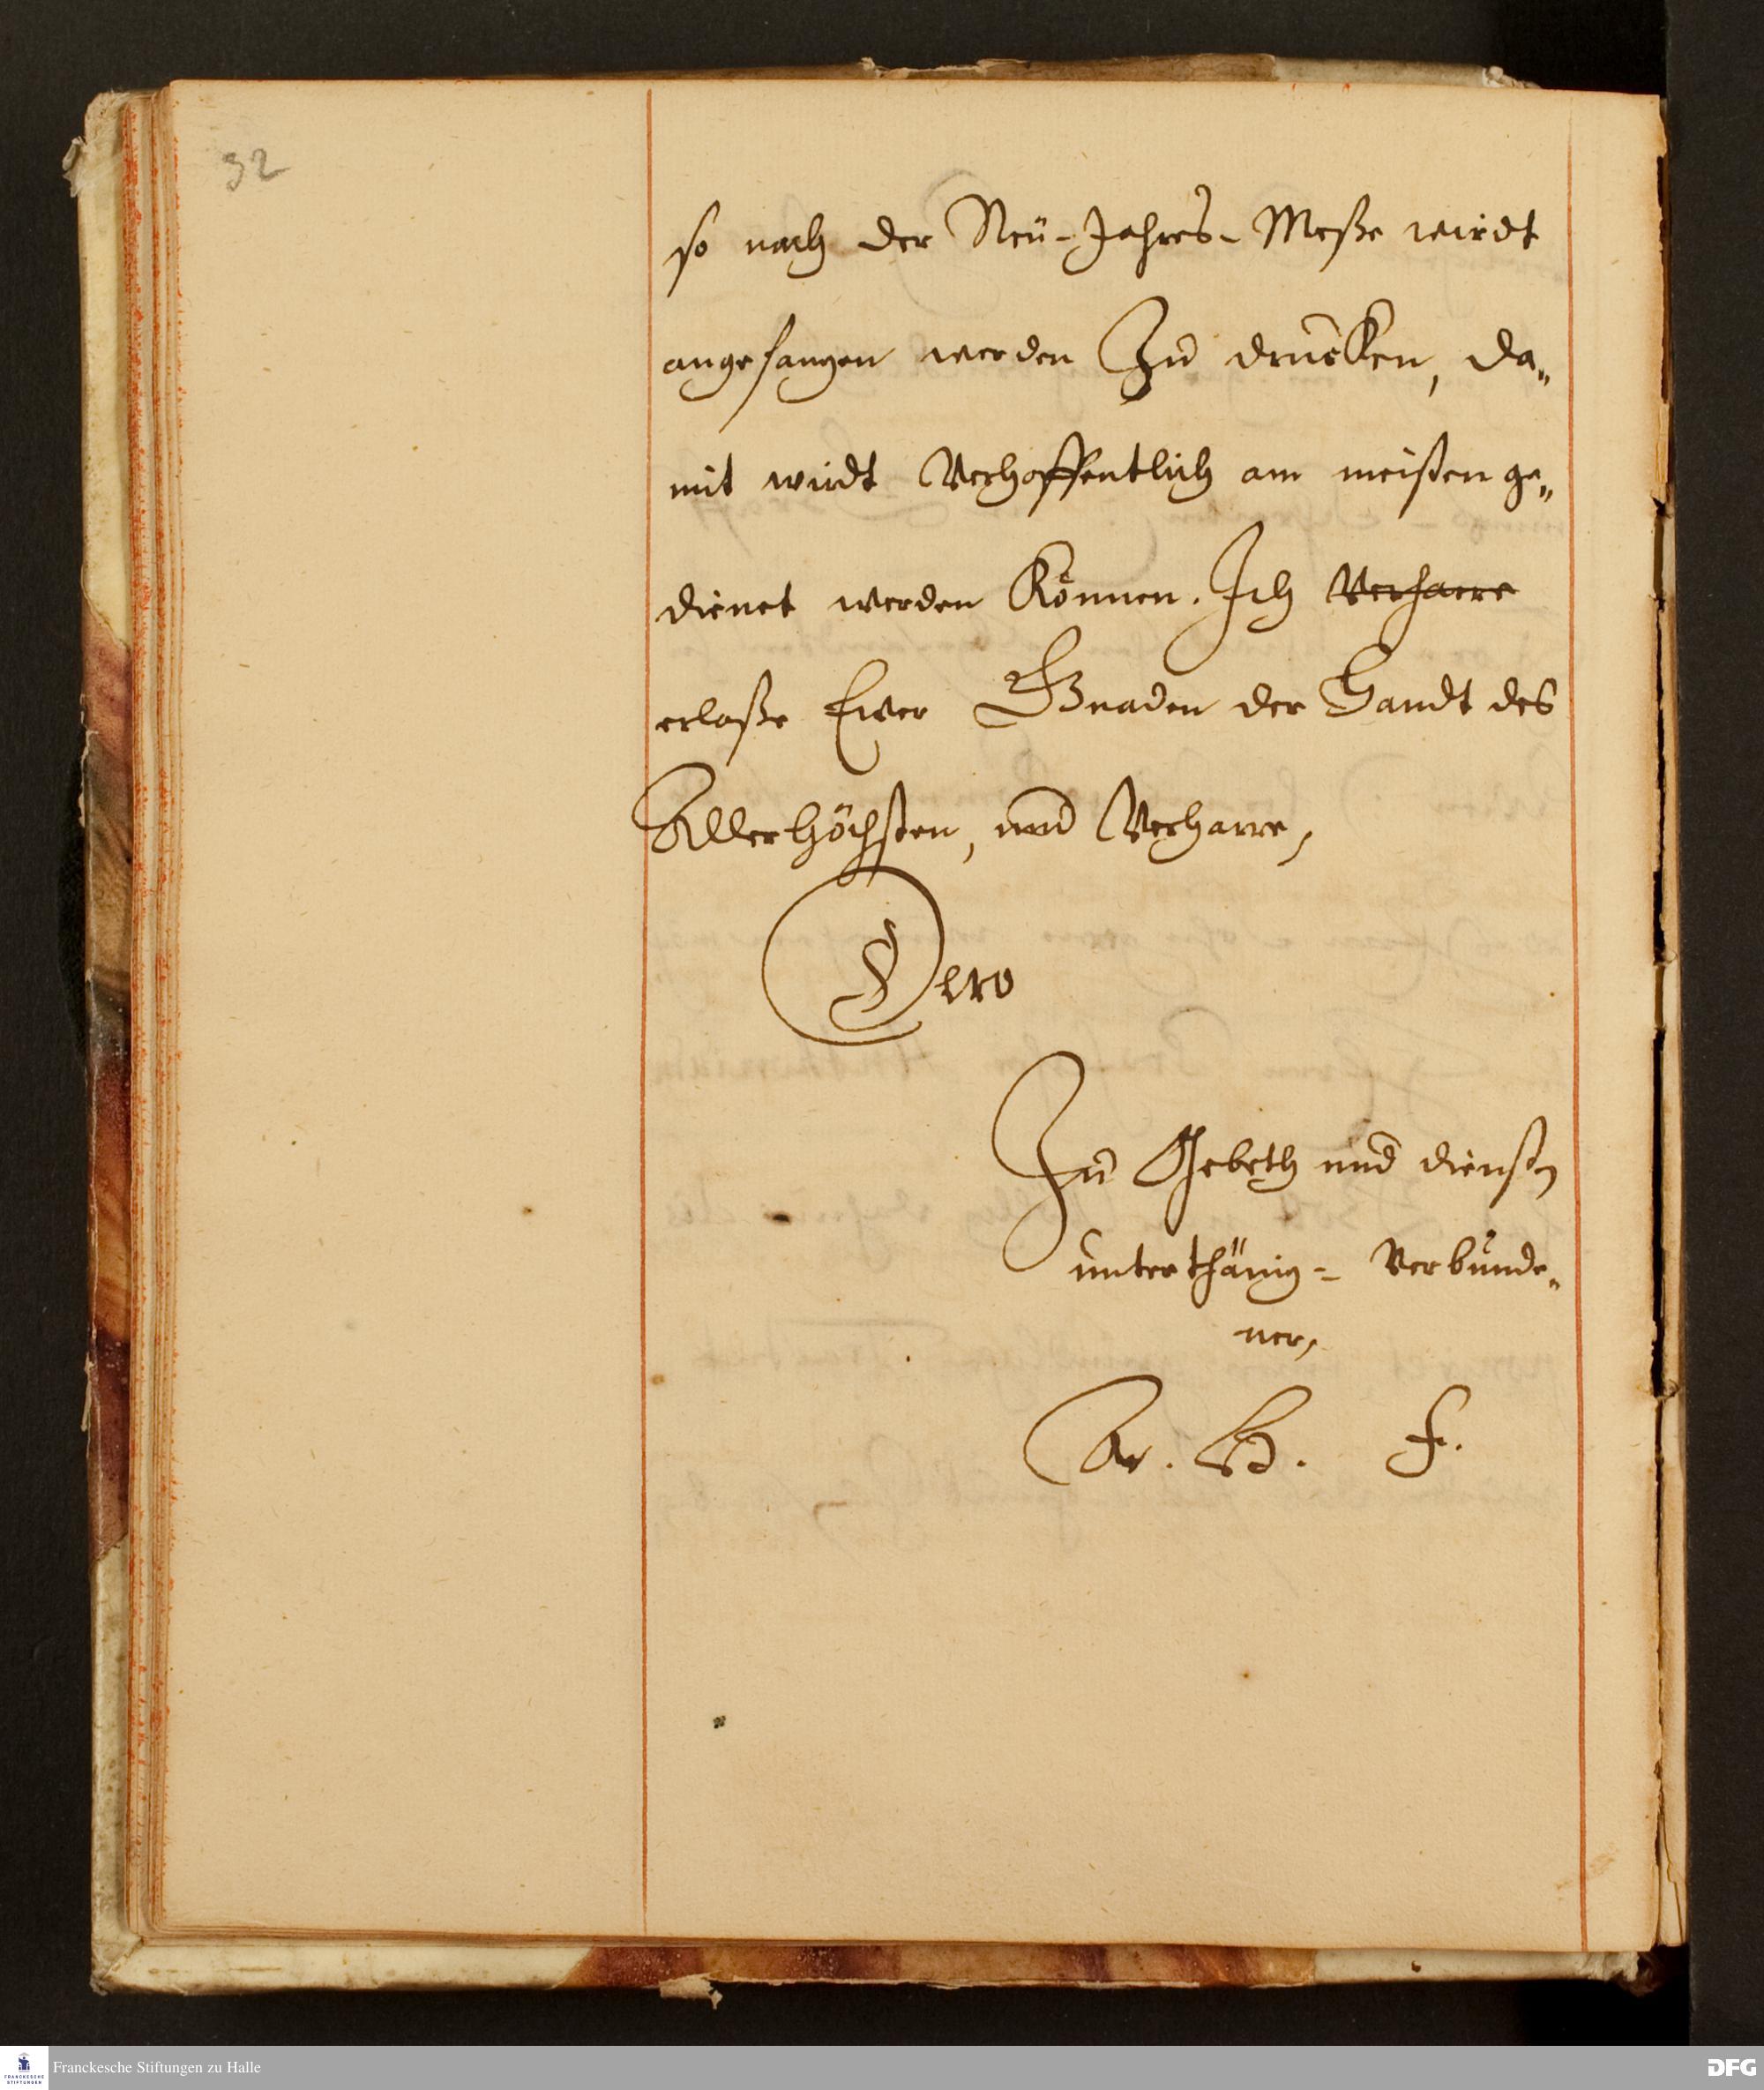 32
so nach der Neü-Jahres-Meße wirdt
angefangen werden Zu drucken, da„
mit wirdt Verhoffentlich am meisten ge„
dienet werden Können. Ich Verharre
erlaße Ewer Gnaden der Handt des
Allerhöchsten, und Verharre,
Dero
Zu Gebeth und dienst
unterthänig- Verbunde„
ner,
A. H. F.
Franckesche Stiftungen zu Halle
FRANCKESCHE
STIFTUNGEN
DFG